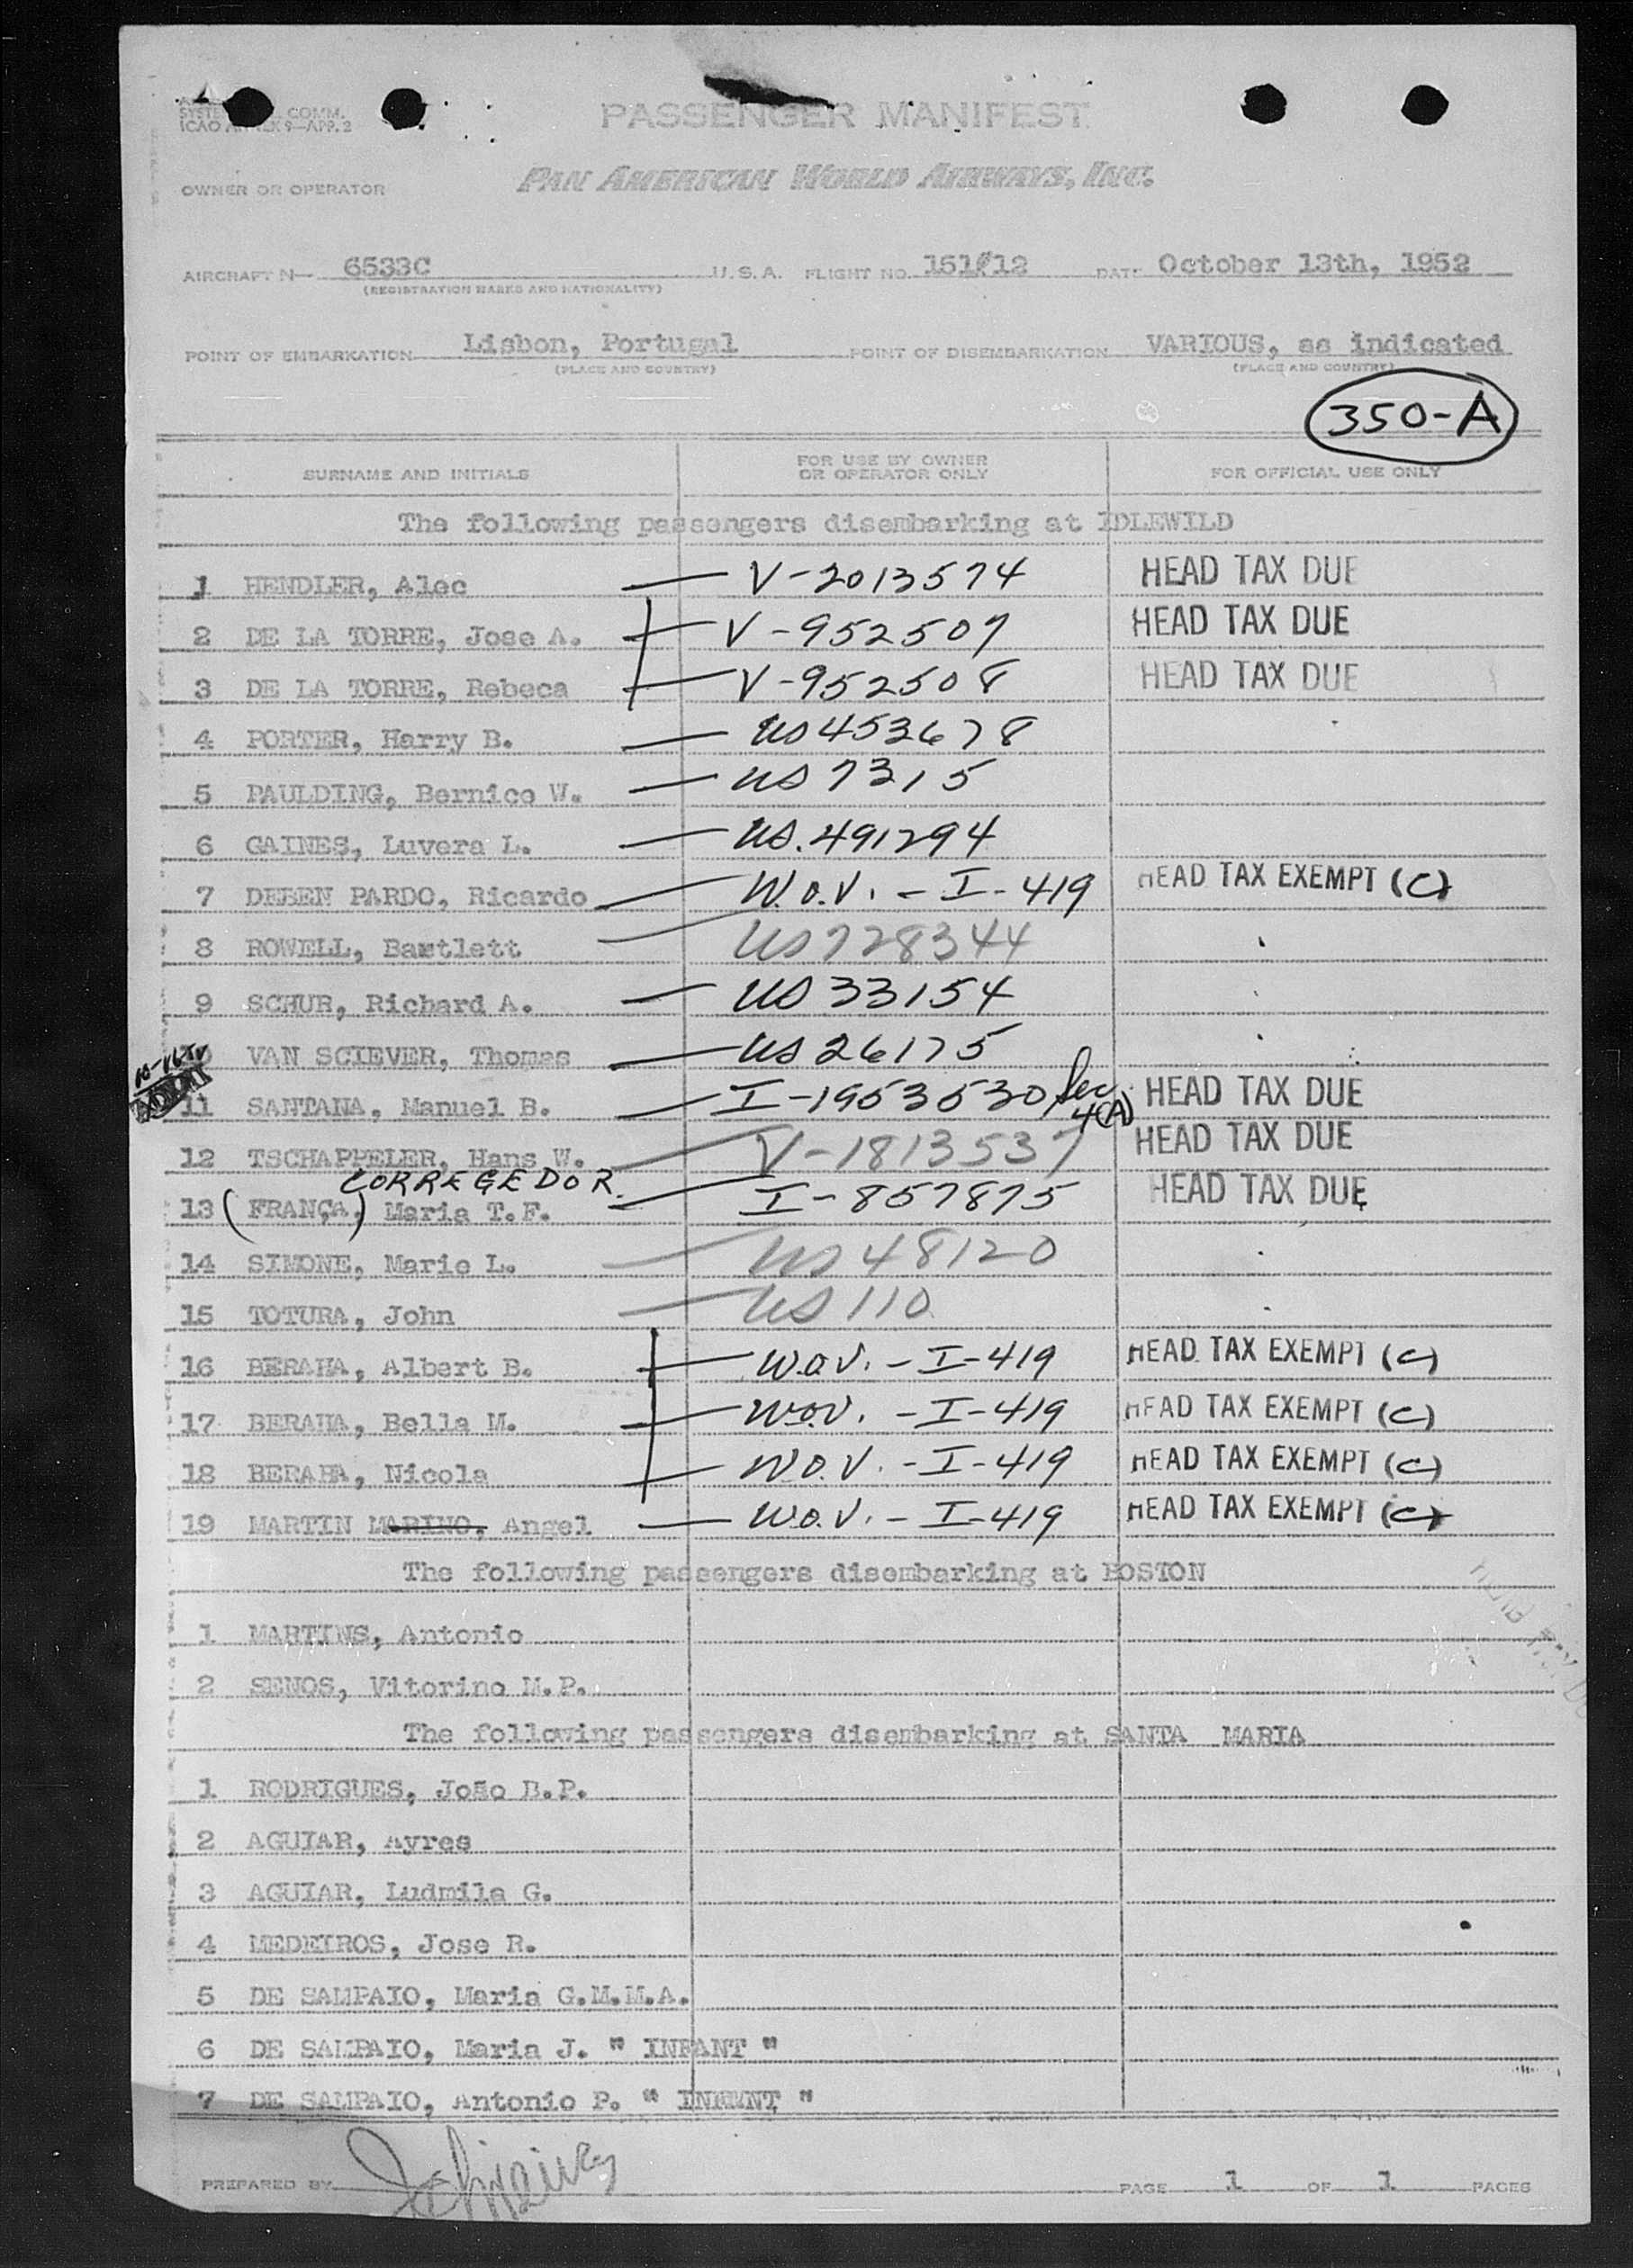 SYSTE COMM.
ICAO ANNEX 9—APP. 2
PASSENGER MANIFEST
OWNER OR OPERATOR PAN AMERICAN WORLD AIRWAYS, INC.
AIRCRAFT N— 6533C U.S.A. FLIGHT NO. 151/12 DATE October 13th, 1952
(REGISTRATION MARKS AND NATIONALITY)
POINT OF EMBARKATION Lisbon, Portugal POINT OF DISEMBARKATION VARIOUS, as indicated
(PLACE AND COUNTRY) (PLACE AND COUNTRY)
350-A
SURNAME AND INITIALS FOR USE BY OWNER OR OPERATOR ONLY FOR OFFICIAL USE ONLY
The following passengers disembarking at IDLEWILD
1 HENDLER, Alec — V-2013574 HEAD TAX DUE
2 DE LA TORRE, Jose A. — V-952507 HEAD TAX DUE
3 DE LA TORRE, Rebeca — V-952508 HEAD TAX DUE
4 PORTER, Harry B. — US 453678
5 PAULDING, Bernice W. — US 7315
6 GAINES, Luvera L. — US. 491294
7 DEBEN PARDO, Ricardo — W.O.V. - I-419 HEAD TAX EXEMPT (C)
8 ROWELL, Bartlett — US 728344
9 SCHUR, Richard A. — US 33154
10 VAN SCIEVER, Thomas — US 26175
ADMIT
11 SANTANA, Manuel B. — I-1953530 Sec. 4(A) HEAD TAX DUE
12 TSCHAPPELER, Hans W. — V-1813537 HEAD TAX DUE
CORREGEDOR.
13 (FRANÇA,) Maria T.F. — I-857875 HEAD TAX DUE
14 SIMONE, Marie L. — US 48120
15 TOTURA, John — US 110
16 BERAHA, Albert B. — W.O.V. - I-419 HEAD TAX EXEMPT (C)
17 BERAHA, Bella M. — W.O.V. - I-419 HEAD TAX EXEMPT (C)
18 BERAHA, Nicola — W.O.V. - I-419 HEAD TAX EXEMPT (C)
19 MARTIN MARINO, Angel — W.O.V. - I-419 HEAD TAX EXEMPT (C)
The following passengers disembarking at BOSTON
1 MARTINS, Antonio
2 SENOS, Vitorino M.P.
The following passengers disembarking at SANTA MARIA
1 RODRIGUES, João B.P.
2 AGUIAR, Ayres
3 AGUIAR, Ludmila G.
4 MEDEIROS, Jose R.
5 DE SAMPAIO, Maria G.M.M.A.
6 DE SAMPAIO, Maria J. " INFANT "
7 DE SAMPAIO, Antonio P. " INFANT "
PREPARED BY PAGE 1 OF 1 PAGES